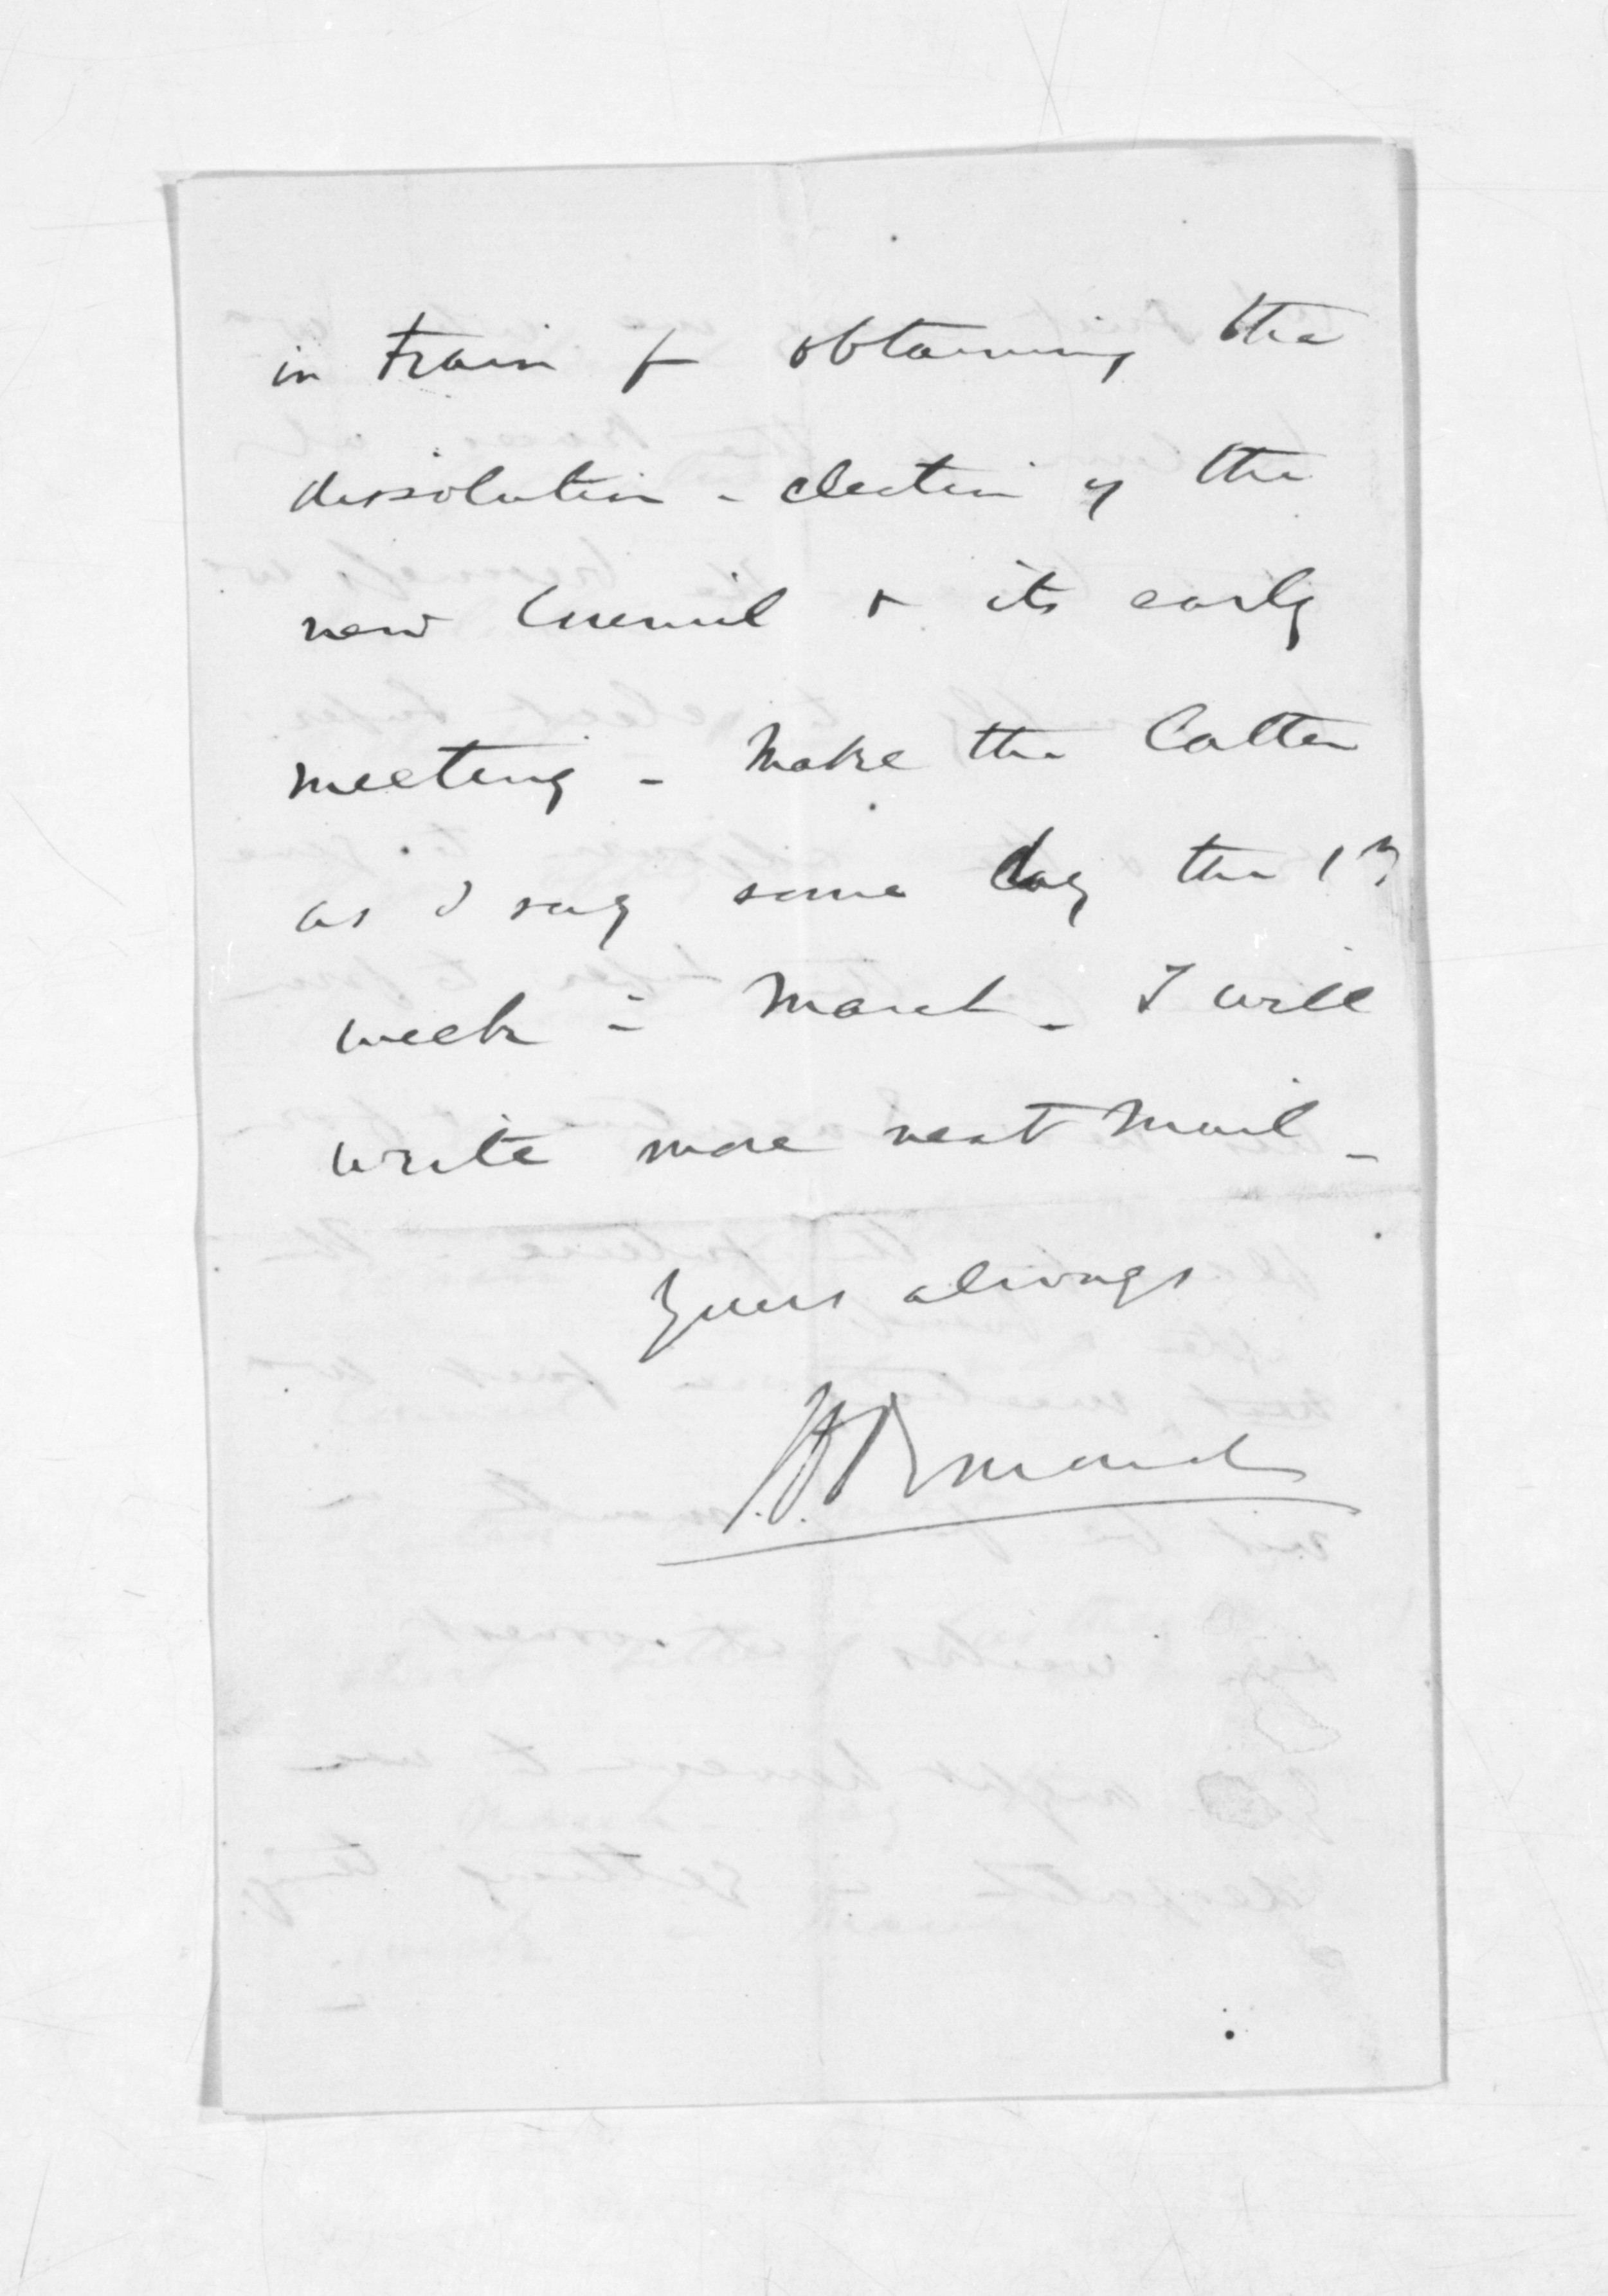 in train for obtaining the
dissolution - election of the
new Council & its early
meeting - Make the latter
as I say some day the 1st
week in March - I will
write more next Mail -
Yours always
J.D. Ormond